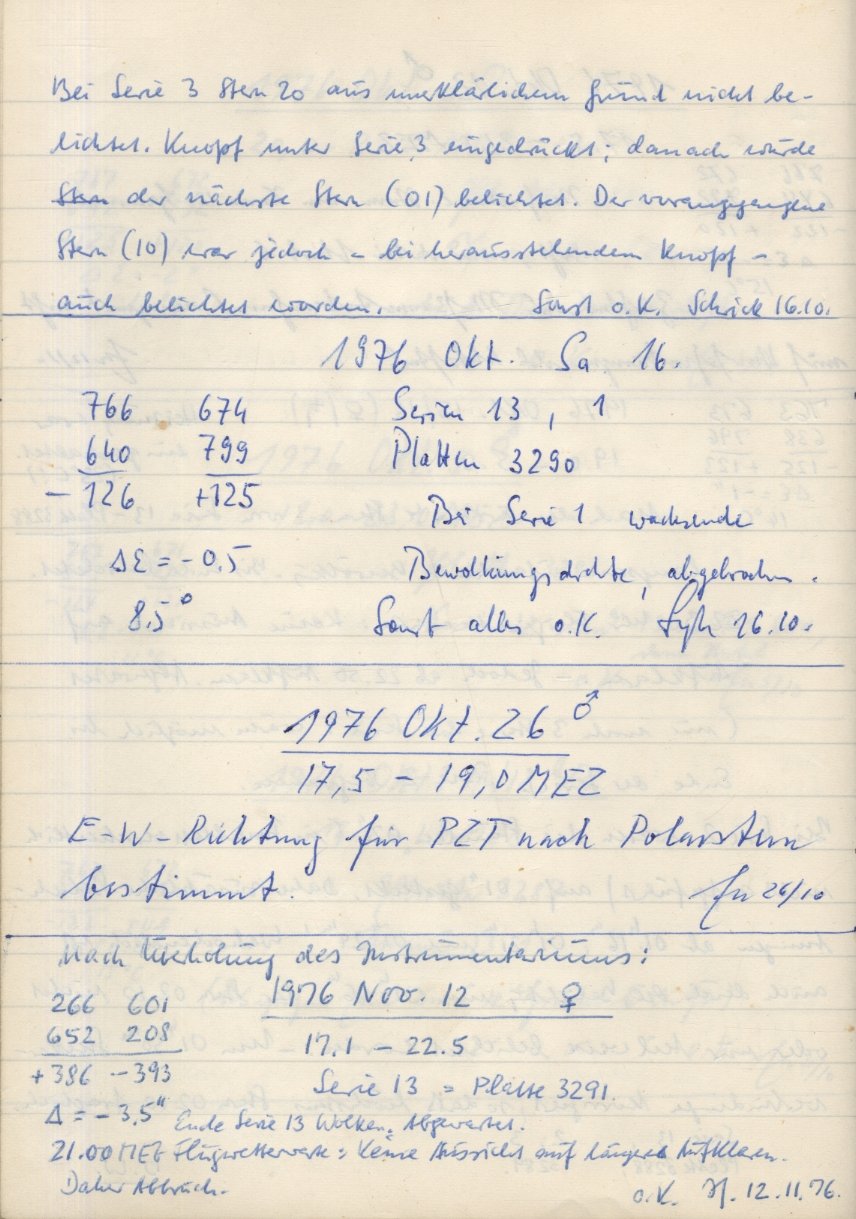 Bei Serie 3 Stern 20 aus unerklärlichem Grund nicht be-
lichtet. Knopf unter Serie 3 eingedrückt; danach wurde
Stern der nächste Stern (01) belichtet. Der vorangegangene
Stern (10) war jedoch - bei herausstehendem Knopf -
auch belichtet worden. Sonst o.K. Schrick 16.10.
1976 Okt. Sa 16.
766 674 Serien 13, 1
640 799 Platten 3290
-126 +125
Bei Serie 1 wachsende
ΔE = -0.5 Bewölkungsdichte, abgebrochen.
8.5° Sonst alles o.K. 16.10.
1976 Okt. 26 ♂
17,5 - 19,0 MEZ
E-W-Richtung für PZT nach Polarstern
bestimmt. 26/10
Nach Überholung des Instrumentariums:
266 601 1976 Nov. 12 ♀
652 208 17.1 - 22.5
+386 -393
Serie 13 = Platte 3291.
Δ = -3,5" Ende Serie 13 Wolken. Abgewartet.
21.00 MEZ Flugwetterwarte: Keine Aussicht auf längeres Aufklaren.
Daher Abbruch.
o.K. 12.11.76.